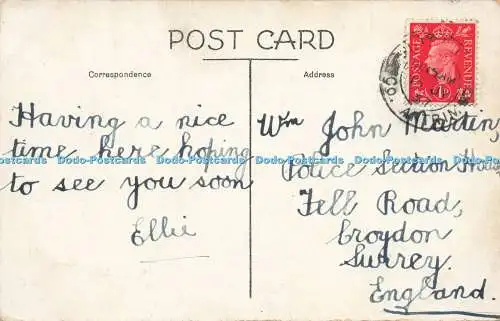 POST CARD
Correspondence
Address
POSTAGE REVENUE
Having a nice
time here hoping
to see you soon
Ellie
Wm John Martin,
Police Section House
Fell Road,
Croydon
Surrey.
England.
Dodo-Postcards Dodo-Postcards Dodo-Postcards Dodo-Postcards Dodo-Postcards